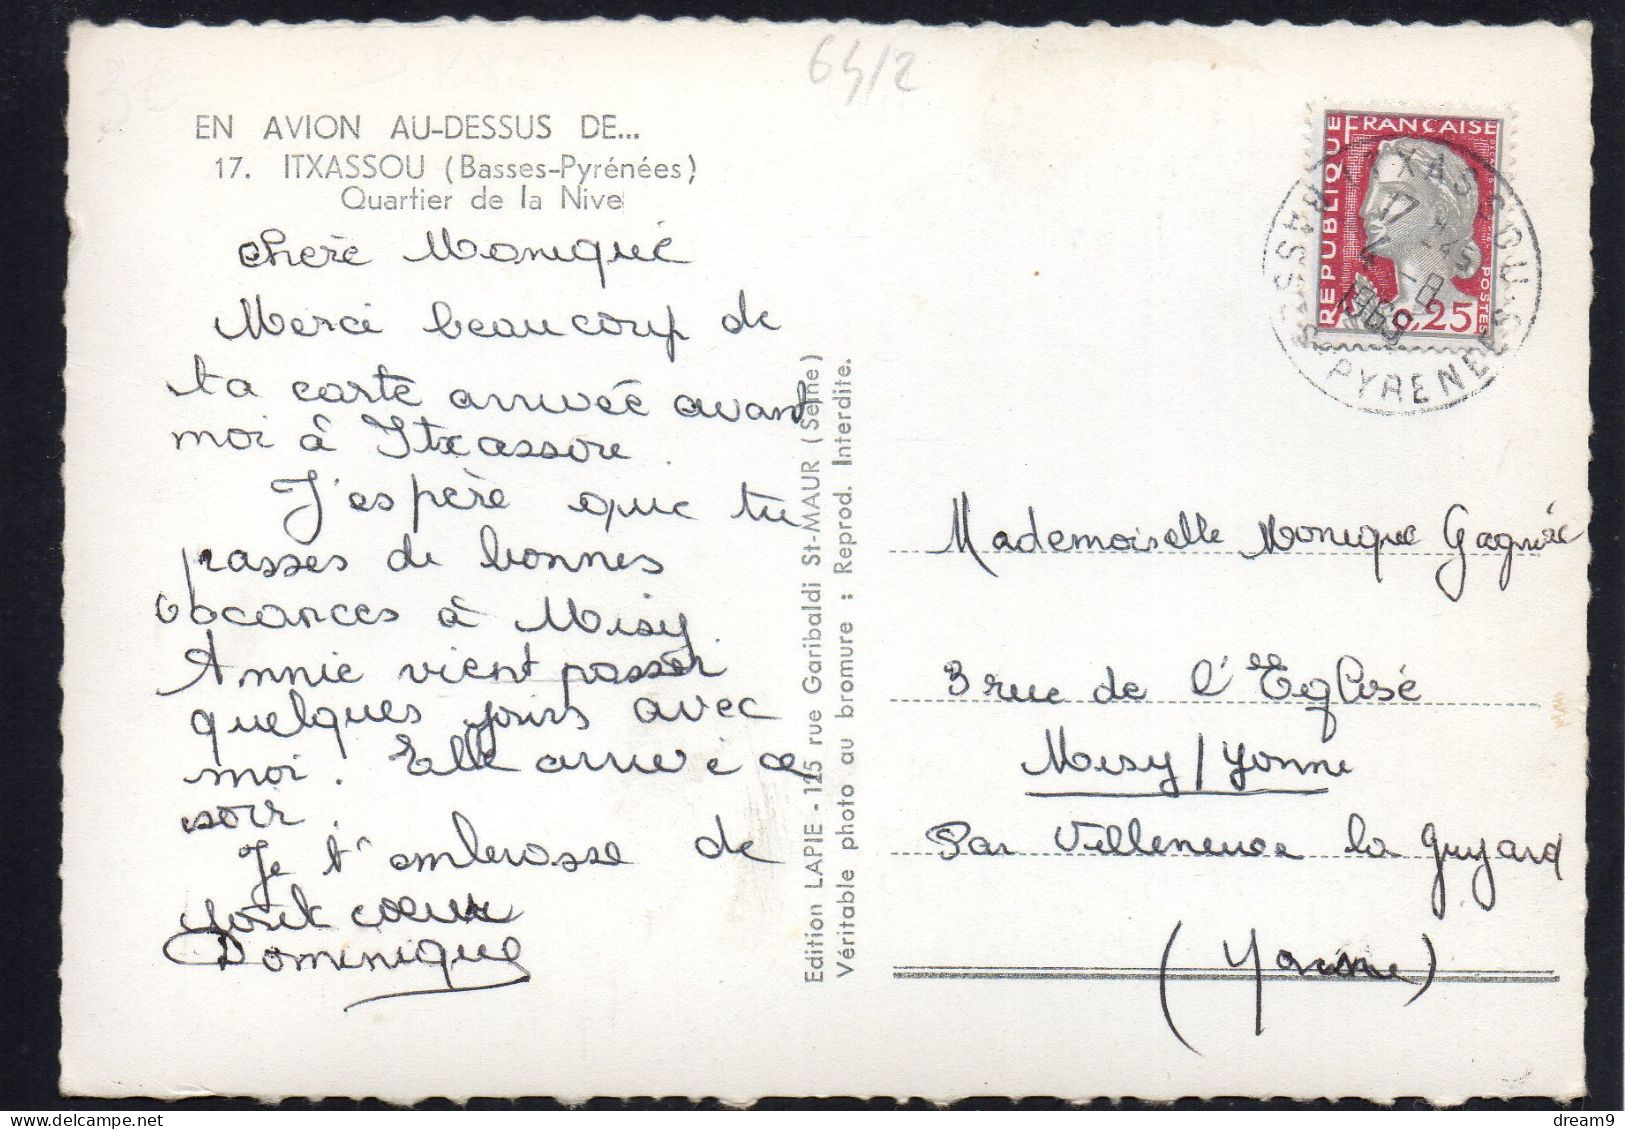 64/2
EN AVION AU-DESSUS DE...
17. ITXASSOU (Basses-Pyrénées)
Quartier de la Nive
chère Monique
Merci beaucoup de
ta carte arrivée avant
moi à Itxassou.
J'espère que tu
passes de bonnes
vacances à Misy.
Annie vient passer
quelques jours avec
moi. Elle arrive ce
soir.
Je t'embrasse de
tout coeur
Dominique
Edition LAPIE - 125 rue Garibaldi St-MAUR (Seine)
Véritable photo au bromure ; Reprod. Interdite.
REPUBLIQUE FRANÇAISE
POSTES
0,25
ITXASSOU
17 H 45
4 - 8
BASSES-PYRENEES
Mademoiselle Monique
3 rue de l'Eglise
Misy / Yonne
Par Villeneuve la Guyard
(Yonne)
dream9